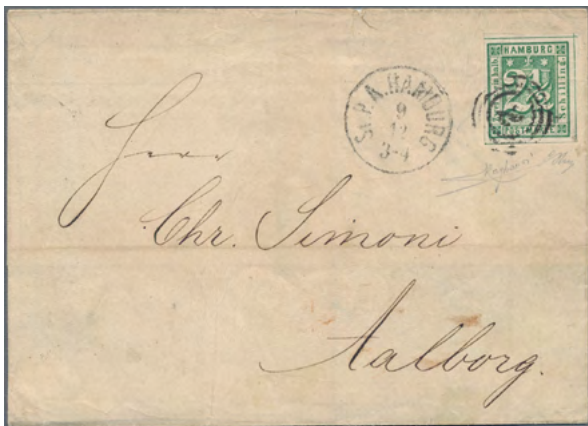 HAMBURG
2½
Schilling
POSTMARKE
St. P. A. HAMBURG
9
12
3-4
Herr
Chr. Simoni
Aalborg.